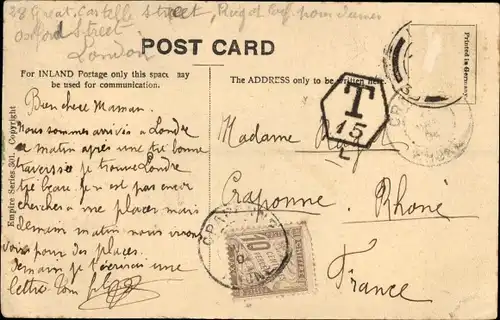 28 Great Castelle Street,
Oxford Street
London
pour dames
POST CARD
For INLAND Postage only this space may
be used for communication.
The ADDRESS only to be written here
Printed in Germany.
Empire Series 301. Copyright
T
15
L
Bien chere Maman.
Nous sommes arrivés à Londre
ce matin après une très bonne
traversée je trouve Londre
très beau. Je n'est pas encor
chercher a me placer mais
demain matin nous irons
voir pour des places.
Demain je t'écrirai une
lettre ton fils
Madame
Craponne
Rhone
France
10
CENTIMES
A PERCEVOIR